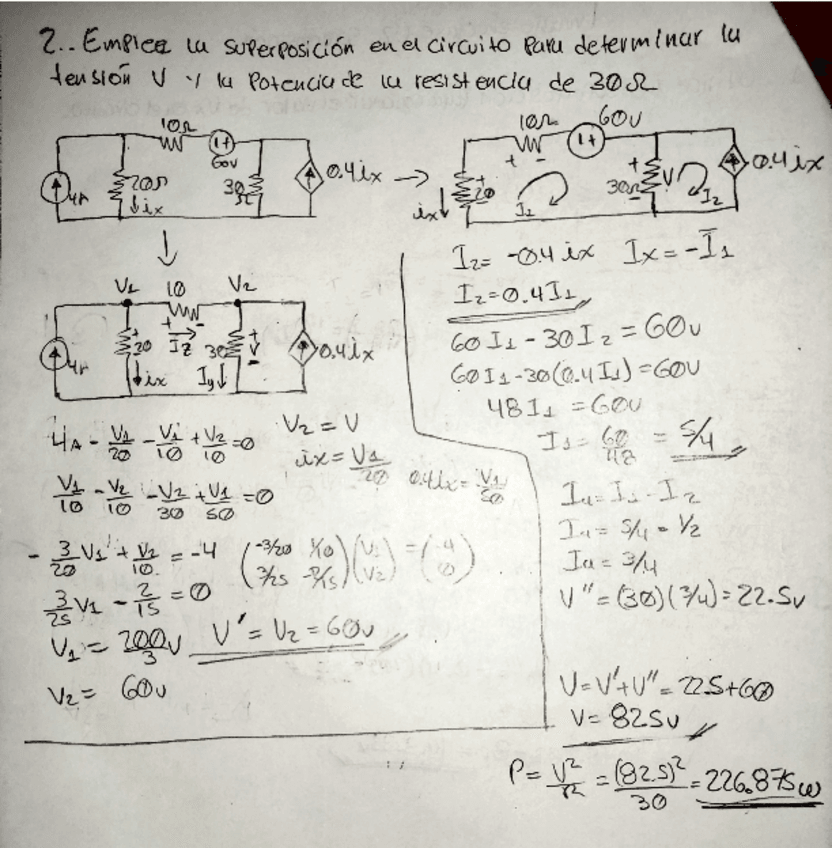 2.. Emplee la superposición en el circuito para determinar la
tensión V y la Potencia de la resistencia de 30Ω
10Ω
60v
4A
20Ω
ix
30Ω
0.4ix
10Ω
60v
20
ix
I1
30Ω
V
I2
0.4ix
V1 10 V2
4A
20
ix
Iz
30
V
Iy
0.4ix
4A - V1/20 - V1/10 + V2/10 = 0
V2 = V
ix = V1/20
0.4ix = V1/50
V1/10 - V2/10 - V2/30 + V1/50 = 0
- 3/20 V1 + V2/10 = -4
(-3/20 1/10
3/25 -2/15) (V1
V2) = (-4
0)
3/25 V1 - 2/15 = 0
V1 = 200/3 v
V' = V2 = 60v
V2 = 60v
I2 = -0.4ix Ix = -I1
I2 = 0.4I1
60I1 - 30I2 = 60v
60I1 - 30(0.4I1) = 60v
48I1 = 60v
I1 = 60/48 = 5/4
Ia = I1 - I2
Ia = 5/4 - 1/2
Ia = 3/4
V'' = (30)(3/4) = 22.5v
V = V' + V'' = 22.5 + 60
V = 82.5v
P = V²/R = (82.5)²/30 = 226.875w